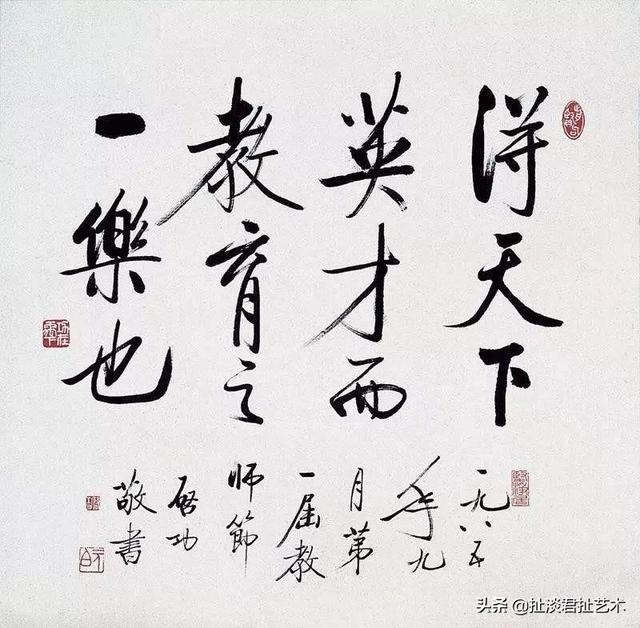 得天下
英才而
教育之
一樂也
一九八五
年九
月第
一届教
师節
启功
敬書
头条 @扯淡君扯艺术